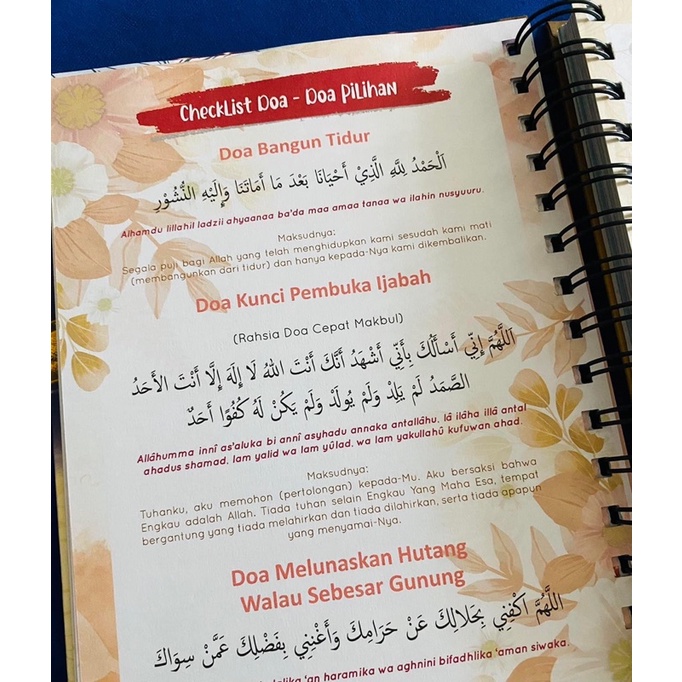 Checklist Doa - Doa Pilihan
Doa Bangun Tidur
اَلْحَمْدُ لِلَّهِ الَّذِيْ أَحْيَانَا بَعْدَ مَا أَمَاتَنَا وَإِلَيْهِ النُّشُوْرِ
Alhamdu lillahil ladzii ahyaanaa ba'da maa amaa tanaa wa ilahin nusyuuru.
Maksudnya:
Segala puji bagi Allah yang telah menghidupkan kami sesudah kami mati
(membangunkan dari tidur) dan hanya kepada-Nya kami dikembalikan.
Doa Kunci Pembuka Ijabah
(Rahsia Doa Cepat Makbul)
اَللَّهُمَّ إِنِّي أَسْأَلُكَ بِأَنِّي أَشْهَدُ أَنَّكَ أَنْتَ اللهُ لَا إِلَهَ إِلَّا أَنْتَ الأَحَدُ
الصَّمَدُ لَمْ يَلِدْ وَلَمْ يُولَدْ وَلَمْ يَكُنْ لَهُ كُفُوًا أَحَدٌ
Allâhumma innî as'aluka bi annî asyhadu annaka antallâhu, lâ ilâha illâ antal
ahadus shamad, lam yalid wa lam yûlad, wa lam yakullahû kufuwan ahad.
Maksudnya:
Tuhanku, aku memohon (pertolongan) kepada-Mu. Aku bersaksi bahwa
Engkau adalah Allah. Tiada tuhan selain Engkau Yang Maha Esa, tempat
bergantung yang tiada melahirkan dan tiada dilahirkan, serta tiada apapun
yang menyamai-Nya.
Doa Melunaskan Hutang
Walau Sebesar Gunung
اَللَّهُمَّ اكْفِنِي بِحَلَالِكَ عَنْ حَرَامِكَ وَأَغْنِنِي بِفَضْلِكَ عَمَّنْ سِوَاكَ
'an haramika wa aghnini bifadhlika 'aman siwaka.